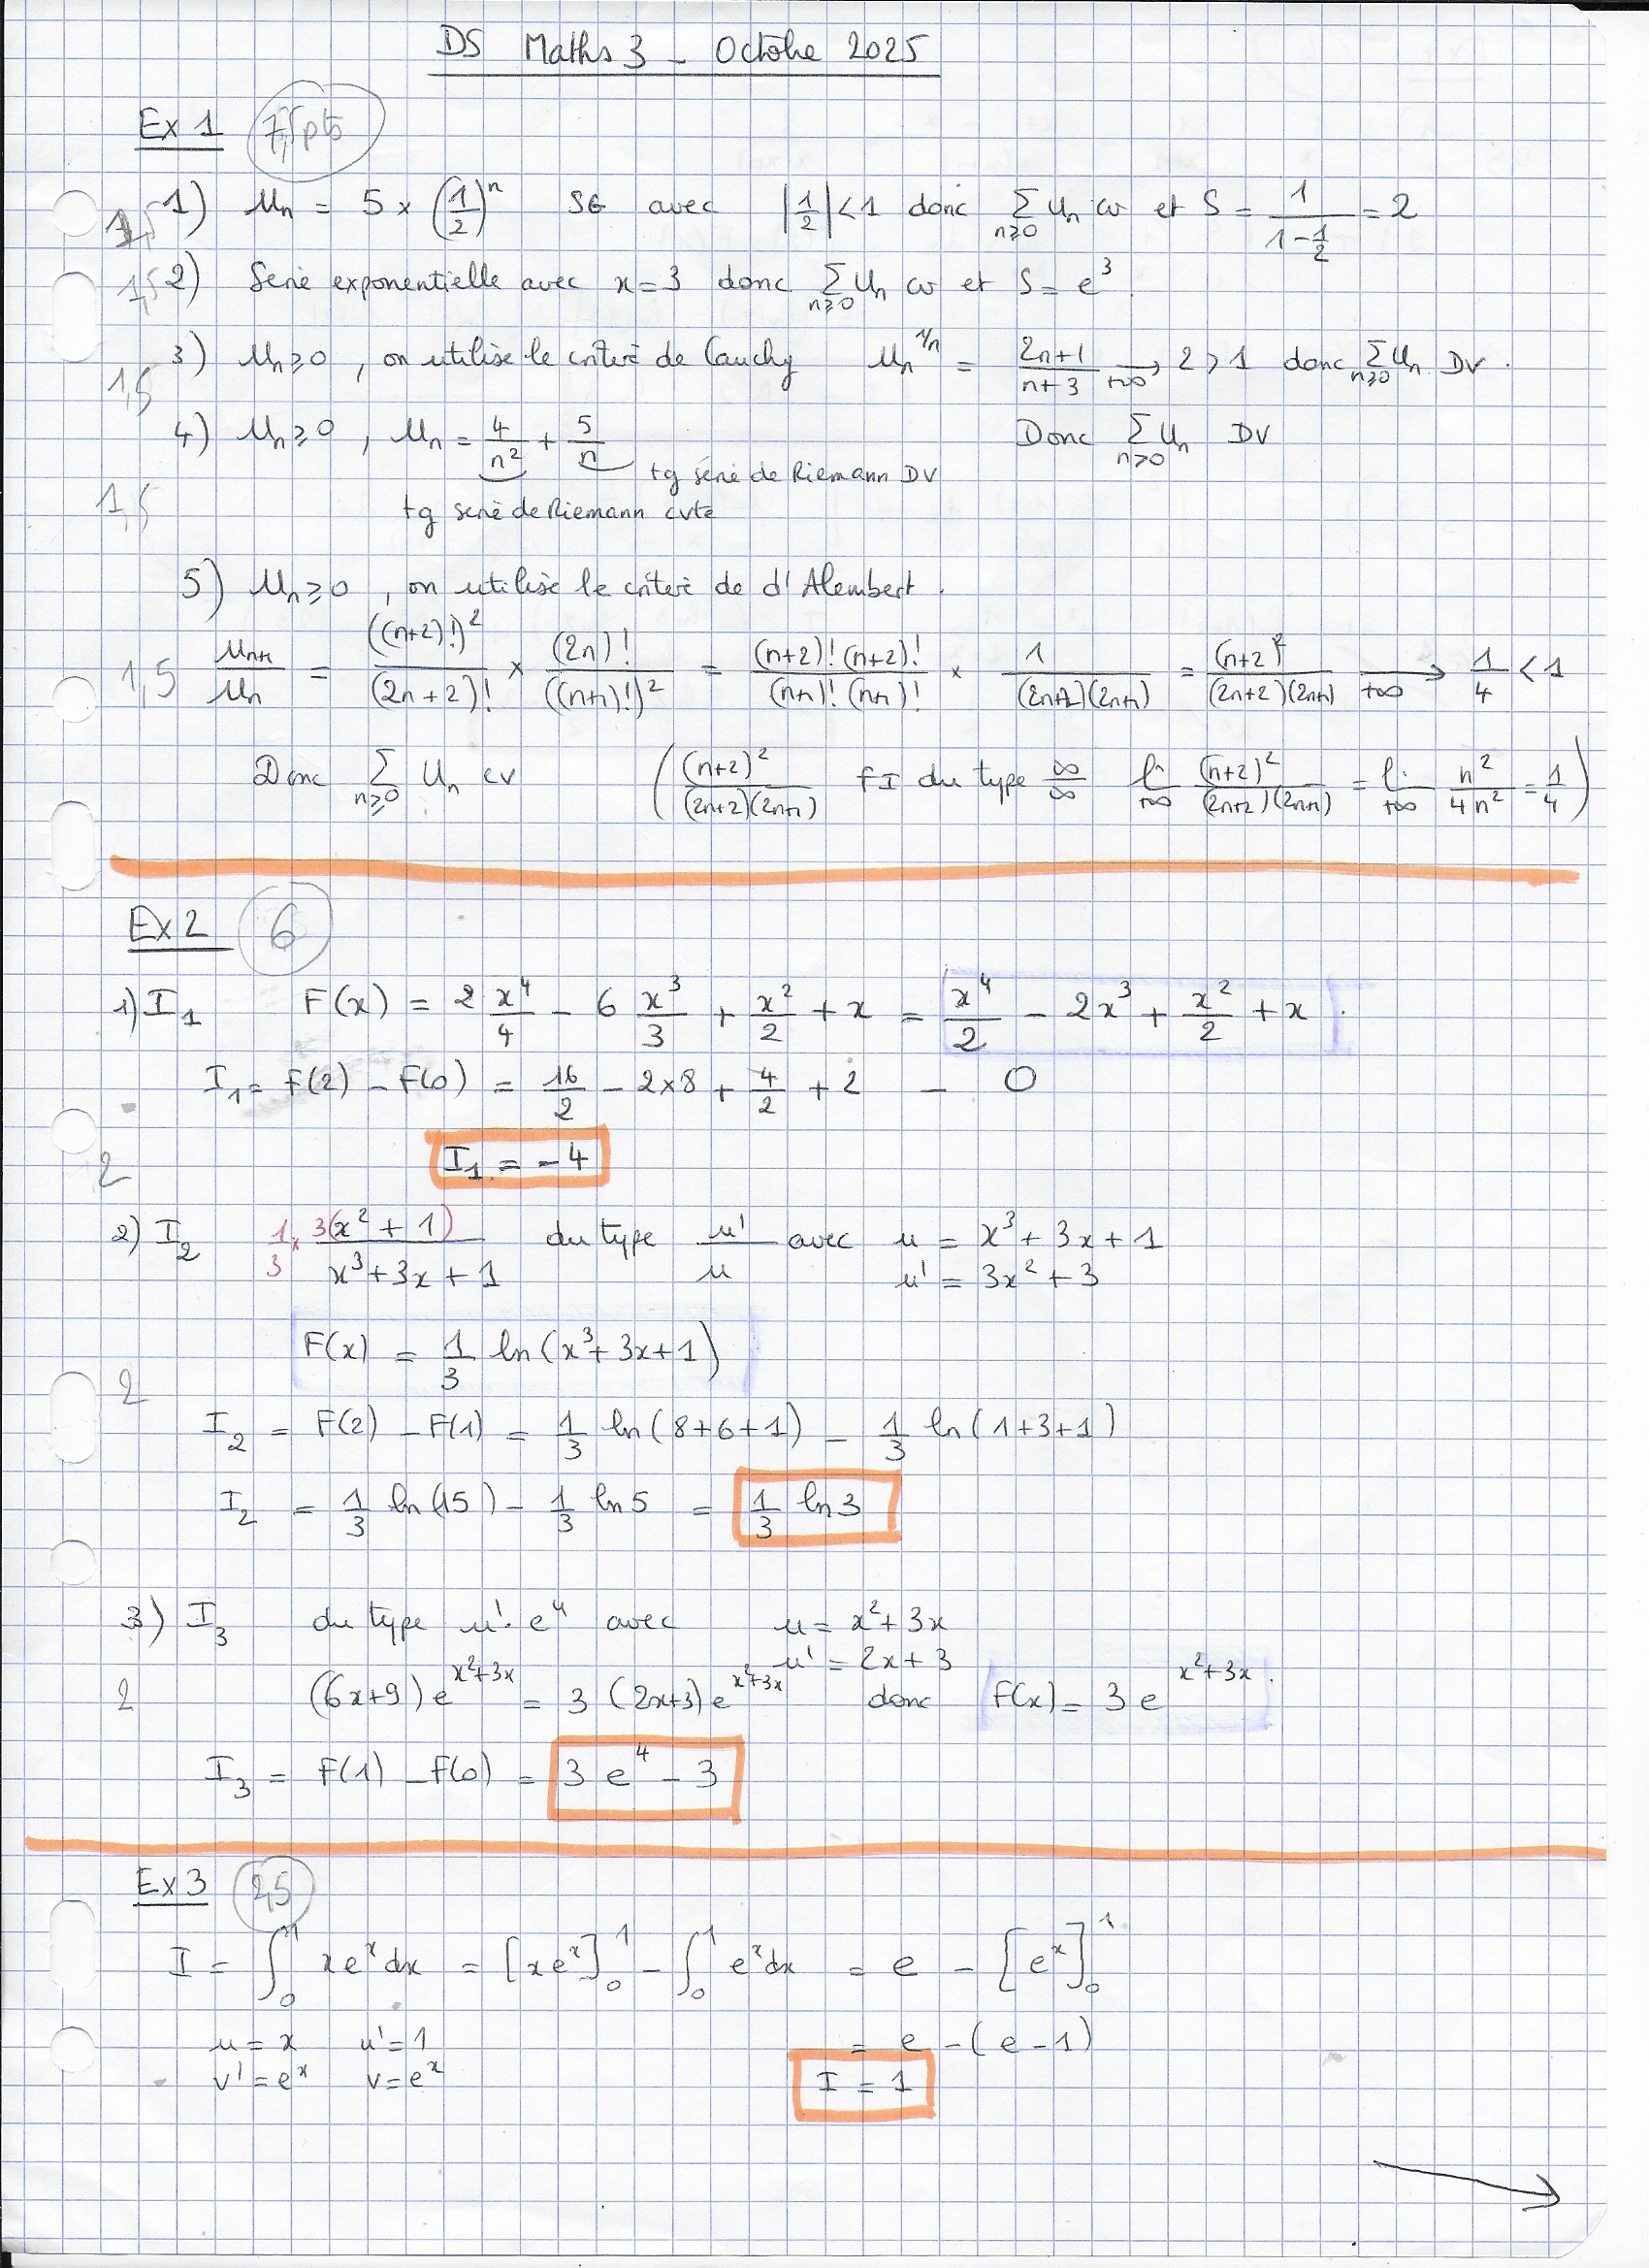 DS Maths 3 - Octobre 2025
Ex 1 7,5 pts
1,5 1) Un = 5 × (1/2)^n SG avec |1/2| < 1 donc ∑_{n≥0} Un cv et S = 1/(1 - 1/2) = 2
1,5 2) Série exponentielle avec x = 3 donc ∑_{n≥0} Un cv et S = e^3.
1,5 3) Un ≥ 0, on utilise le critère de Cauchy Un^{1/n} = (2n+1)/(n+3) →_{+∞} 2 > 1 donc ∑_{n≥0} Un DV.
4) Un ≥ 0, Un = 4/n² + 5/n Donc ∑_{n>0} Un DV
tg série de Riemann DV
1,5 tg série de Riemann cvte
5) Un ≥ 0, on utilise le critère de d'Alembert.
1,5 Un+1/Un = ((n+2)!)²/(2n+2)! × (2n)!/((n+1)!)² = (n+2)!(n+2)!/(n+1)!(n+1)! × 1/(2n+2)(2n+1) = (n+2)²/(2n+2)(2n+1) →_{+∞} 1/4 < 1
Donc ∑_{n≥0} Un cv ( (n+2)²/(2n+2)(2n+1) FI du type ∞/∞ li_{+∞} (n+2)²/(2n+2)(2n+1) = li_{+∞} n²/4n² = 1/4 )
Ex 2 6
1) I1 F(x) = 2 x⁴/4 - 6 x³/3 + x²/2 + x = x⁴/2 - 2x³ + x²/2 + x.
I1 = F(2) - F(0) = 16/2 - 2×8 + 4/2 + 2 - 0
2 I1 = -4
2) I2 1/3 × 3(x² + 1)/(x³ + 3x + 1) du type u'/u avec u = x³ + 3x + 1
u' = 3x² + 3
F(x) = 1/3 ln(x³ + 3x + 1)
2
I2 = F(2) - F(1) = 1/3 ln(8+6+1) - 1/3 ln(1+3+1)
I2 = 1/3 ln(15) - 1/3 ln 5 = 1/3 ln 3
3) I3 du type u'. e^u avec u = x² + 3x
u' = 2x + 3
2 (6x+9) e^{x²+3x} = 3 (2x+3) e^{x²+3x} donc F(x) = 3 e^{x²+3x}.
I3 = F(1) - F(0) = 3 e⁴ - 3
Ex 3 2,5
I = ∫_0^1 x e^x dx = [x e^x]_0^1 - ∫_0^1 e^x dx = e - [e^x]_0^1
u = x u' = 1 = e - (e - 1)
v' = e^x v = e^x I = 1